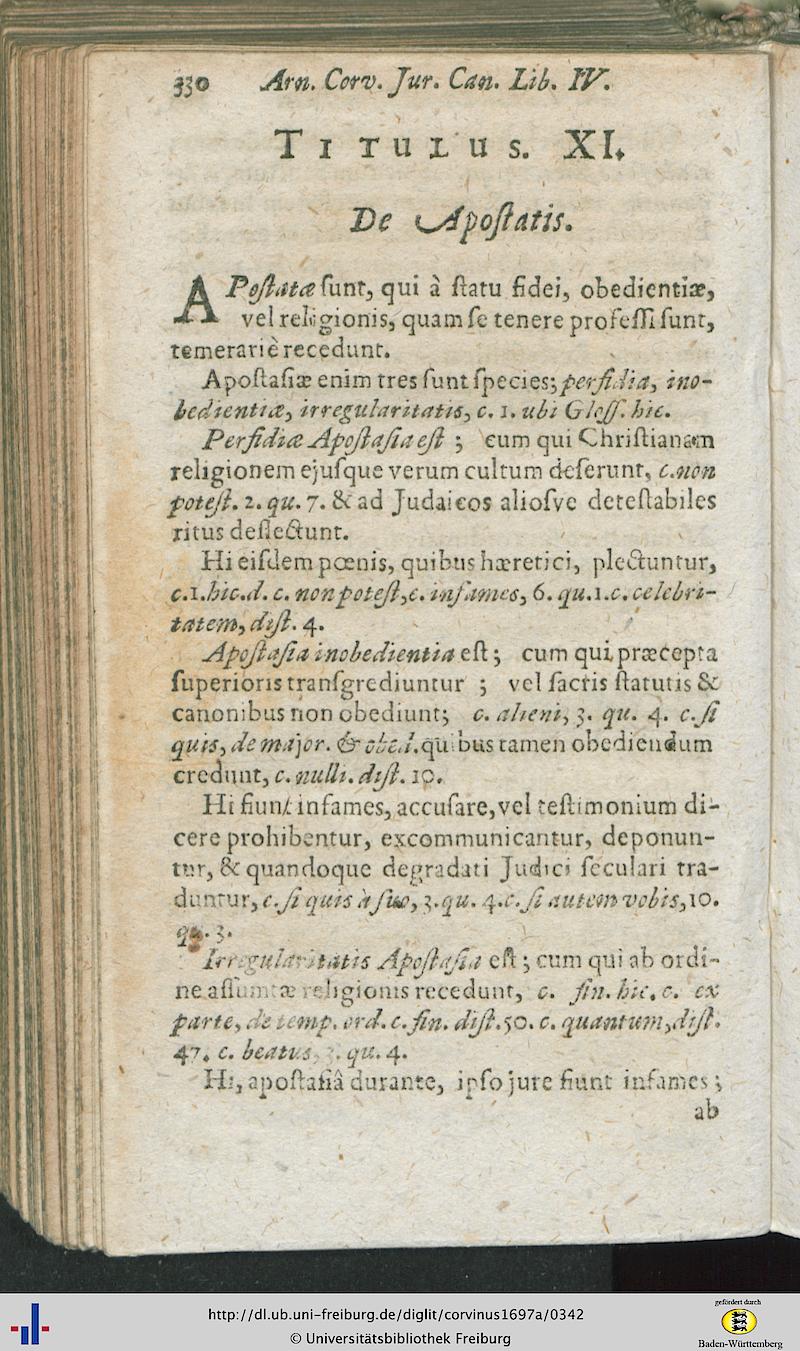 330 Arn. Corv. Jur. Can. Lib. IV.
TITULUS. XI.
De Apostatis.
APostatæ sunt, qui à statu fidei, obedientiæ,
vel religionis, quam se tenere professi sunt,
temerariè recedunt.
Apostasiæ enim tres sunt species; perfidia, ino-
bedientiæ, irregularitatis, c. 1. ubi Gloss. hic.
Perfidiæ Apostasia est; cum qui Christianam
religionem ejusque verum cultum deserunt, c. non
potest. 2. qu. 7. & ad Judaicos aliosve detestabiles
ritus deflectunt.
Hi eisdem pœnis, quibus hæretici, plectuntur,
c.1.hic.d. c. non potest, c. infames, 6. qu.1.c. celebri-
tatem, dist. 4.
Apostasia inobedientia est; cum qui præcepta
superioris transgrediuntur ; vel sacris statutis &
canonibus non obediunt; c. alieni, 3. qu. 4. c. si
quis, de major. & obed. quibus tamen obediendum
credunt, c. nulli. dist. 19.
Hi fiunt infames, accusare, vel testimonium di-
cere prohibentur, excommunicantur, deponun-
tur, & quandoque degradati Judici seculari tra-
duntur, c. si quis à suo, 3. qu. 4. c. si autem vobis, 10.
qu. 3.
Irregularitatis Apostasia est; cum qui ab ordi-
ne assumtæ religionis recedunt, c. fin. hic. c. ex
parte, de temp. ord. c. fin. dist. 50. c. quantum, dist.
47. c. beatus, 3. qu. 4.
Hi, apostasiâ durante, ipso jure fiunt infames;
ab
http://dl.ub.uni-freiburg.de/diglit/corvinus1697a/0342
© Universitätsbibliothek Freiburg
gefördert durch
Baden-Württemberg